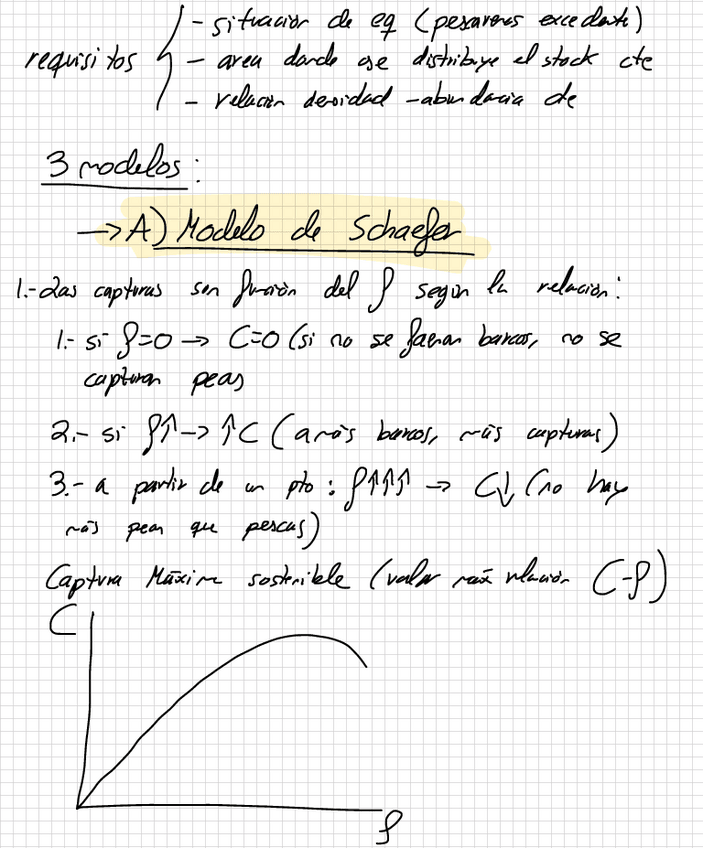 - situación de eq (pescaremos excedente)
requisitos { - area donde se distribuye el stock cte
- relación densidad - abundacia cte
3 modelos:
→ A) Modelo de Schaefer
1.- Las capturas son función del f según la relación:
1.- si f=0 → C=0 (si no se faenan barcos, no se
capturan peces
2.- si f↑ → ↑C (a más barcos, más capturas)
3.- a partir de un pto: f↑↑↑ → C↓ (no hay
más peces que pescas)
Captura Máxima sostenible (valor máx relación C-f)
C
f